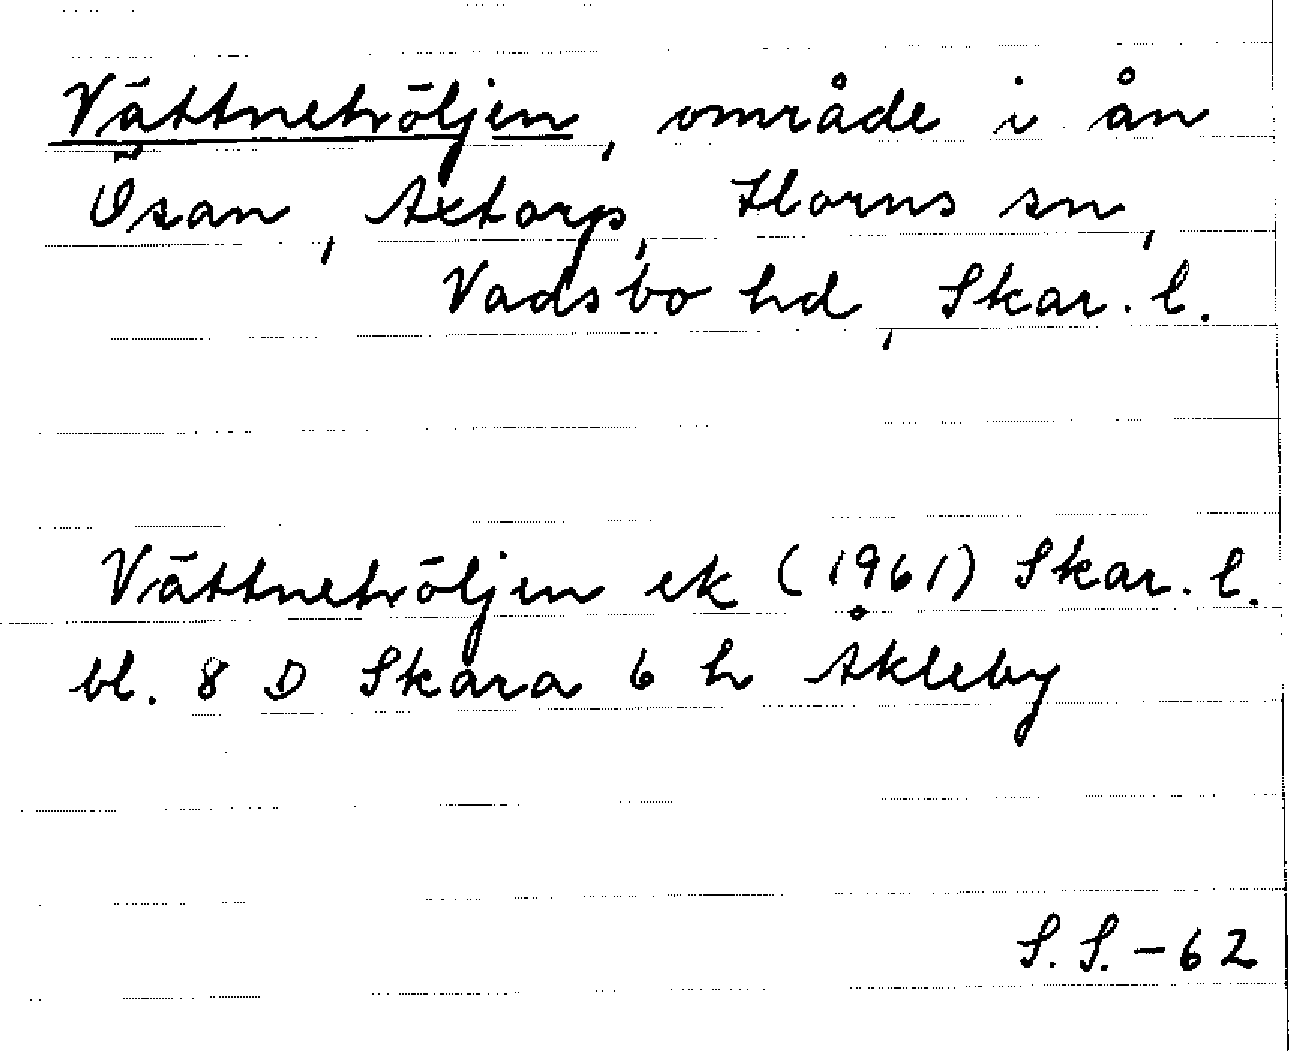 Vättnehöljen, område i ån
Ösan, Axtorp, Horns sn,
Vadsbo hd, Skar. l.
Vättnehöljen ek (1961) Skar. l.
bl. 8 D Skara 6 h Åkleby
S. S. - 62